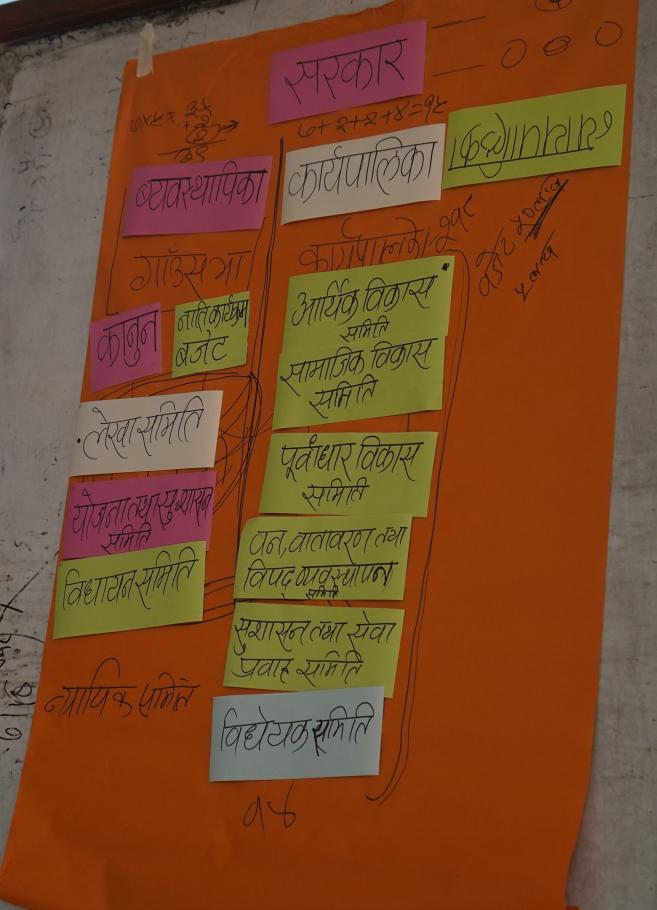 सरकार
७+२+२+४=१५
व्यवस्थापिका
कार्यपालिका
गाँउसभा
कानुन
नीति कार्यक्रम
बजेट
आर्थिक विकास
समिति
सामाजिक विकास
समिति
लेखा समिति
पूर्वाधार विकास
समिति
योजना तथा सुशासन
समिति
वन, वातावरण तथा
विपद् व्यवस्थापन
समिति
विधायन समिति
सुशासन तथा सेवा
प्रवाह समिति
न्यायिक समिति
विधेयक समिति